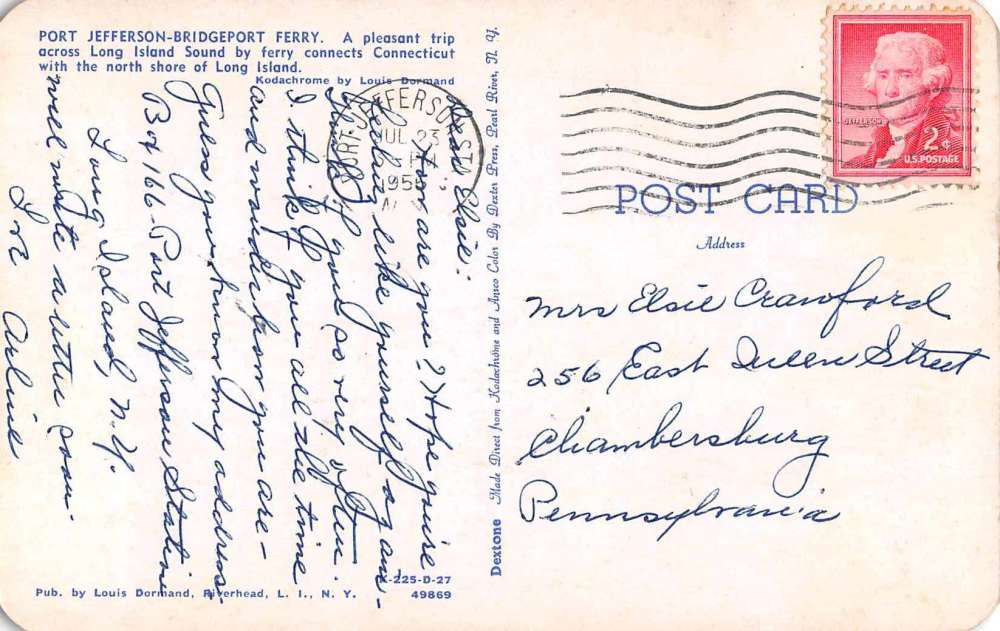 PORT JEFFERSON-BRIDGEPORT FERRY. A pleasant trip
across Long Island Sound by ferry connects Connecticut
with the north shore of Long Island.
Kodachrome by Louis Dormand
Dear Elsie:
How are you? Hope you're
feeling like yourself again-
of you so very often.
I think of you all the time
and wonder how you are-
Guess you know my address-
Box 166-Port Jefferson Station
Long Island, N.Y.
Will write a little soon.
Love Arline
K-225-D-27
49869
Pub. by Louis Dormand, Riverhead, L. I., N. Y.
Dextone Made Direct from Kodachrome and Ansco Color By Dexter Press, Pearl River, N. Y.
PORT JEFFERSON STA.
JUL 23
PM
N.Y.
JEFFERSON
2¢
U.S. POSTAGE
POST CARD
Address
Mrs Elsie Crawford
256 East Queen Street
Chambersburg
Pennsylvania